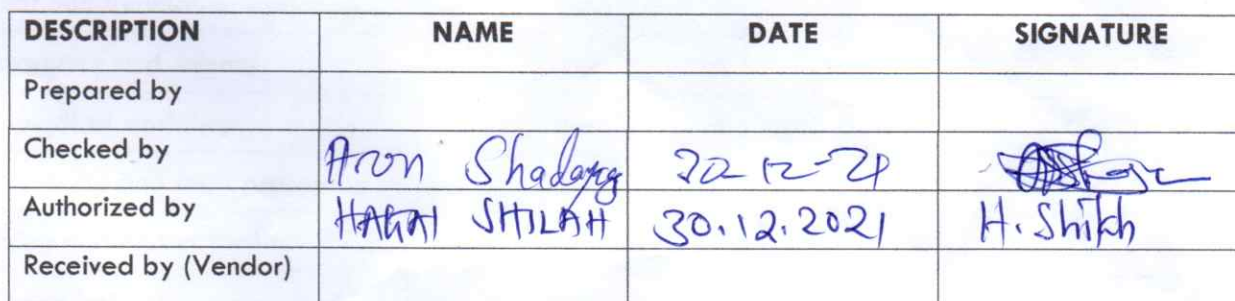 DESCRIPTION NAME DATE SIGNATURE
Prepared by
Checked by Aron
Authorized by HAGAI SHILAH 30.12.2021 H. Shilah
Received by (Vendor)